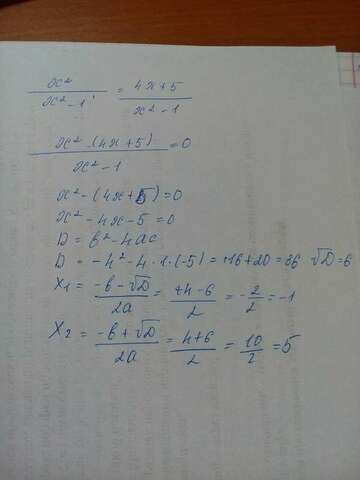 x²/(x²-1) = (4x+5)/(x²-1)
(x²-(4x+5))/(x²-1) = 0
x²-(4x+5)=0
x²-4x-5=0
D = b²-4ac
D = -4²-4·1·(-5) = +16+20=36 √D=6
X₁ = (-b-√D)/2a = (+4-6)/2 = -2/2 = -1
X₂ = (-b+√D)/2a = (4+6)/2 = 10/2 = 5